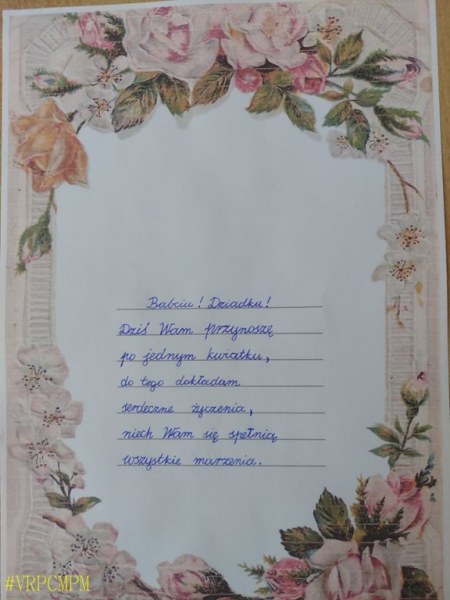 Babciu! Dziadku!
Dziś Wam przynoszę
po jednym kwiatku,
do tego dokładam
serdeczne życzenia,
niech Wam się spełnią
wszystkie marzenia.
#VRPCMPM